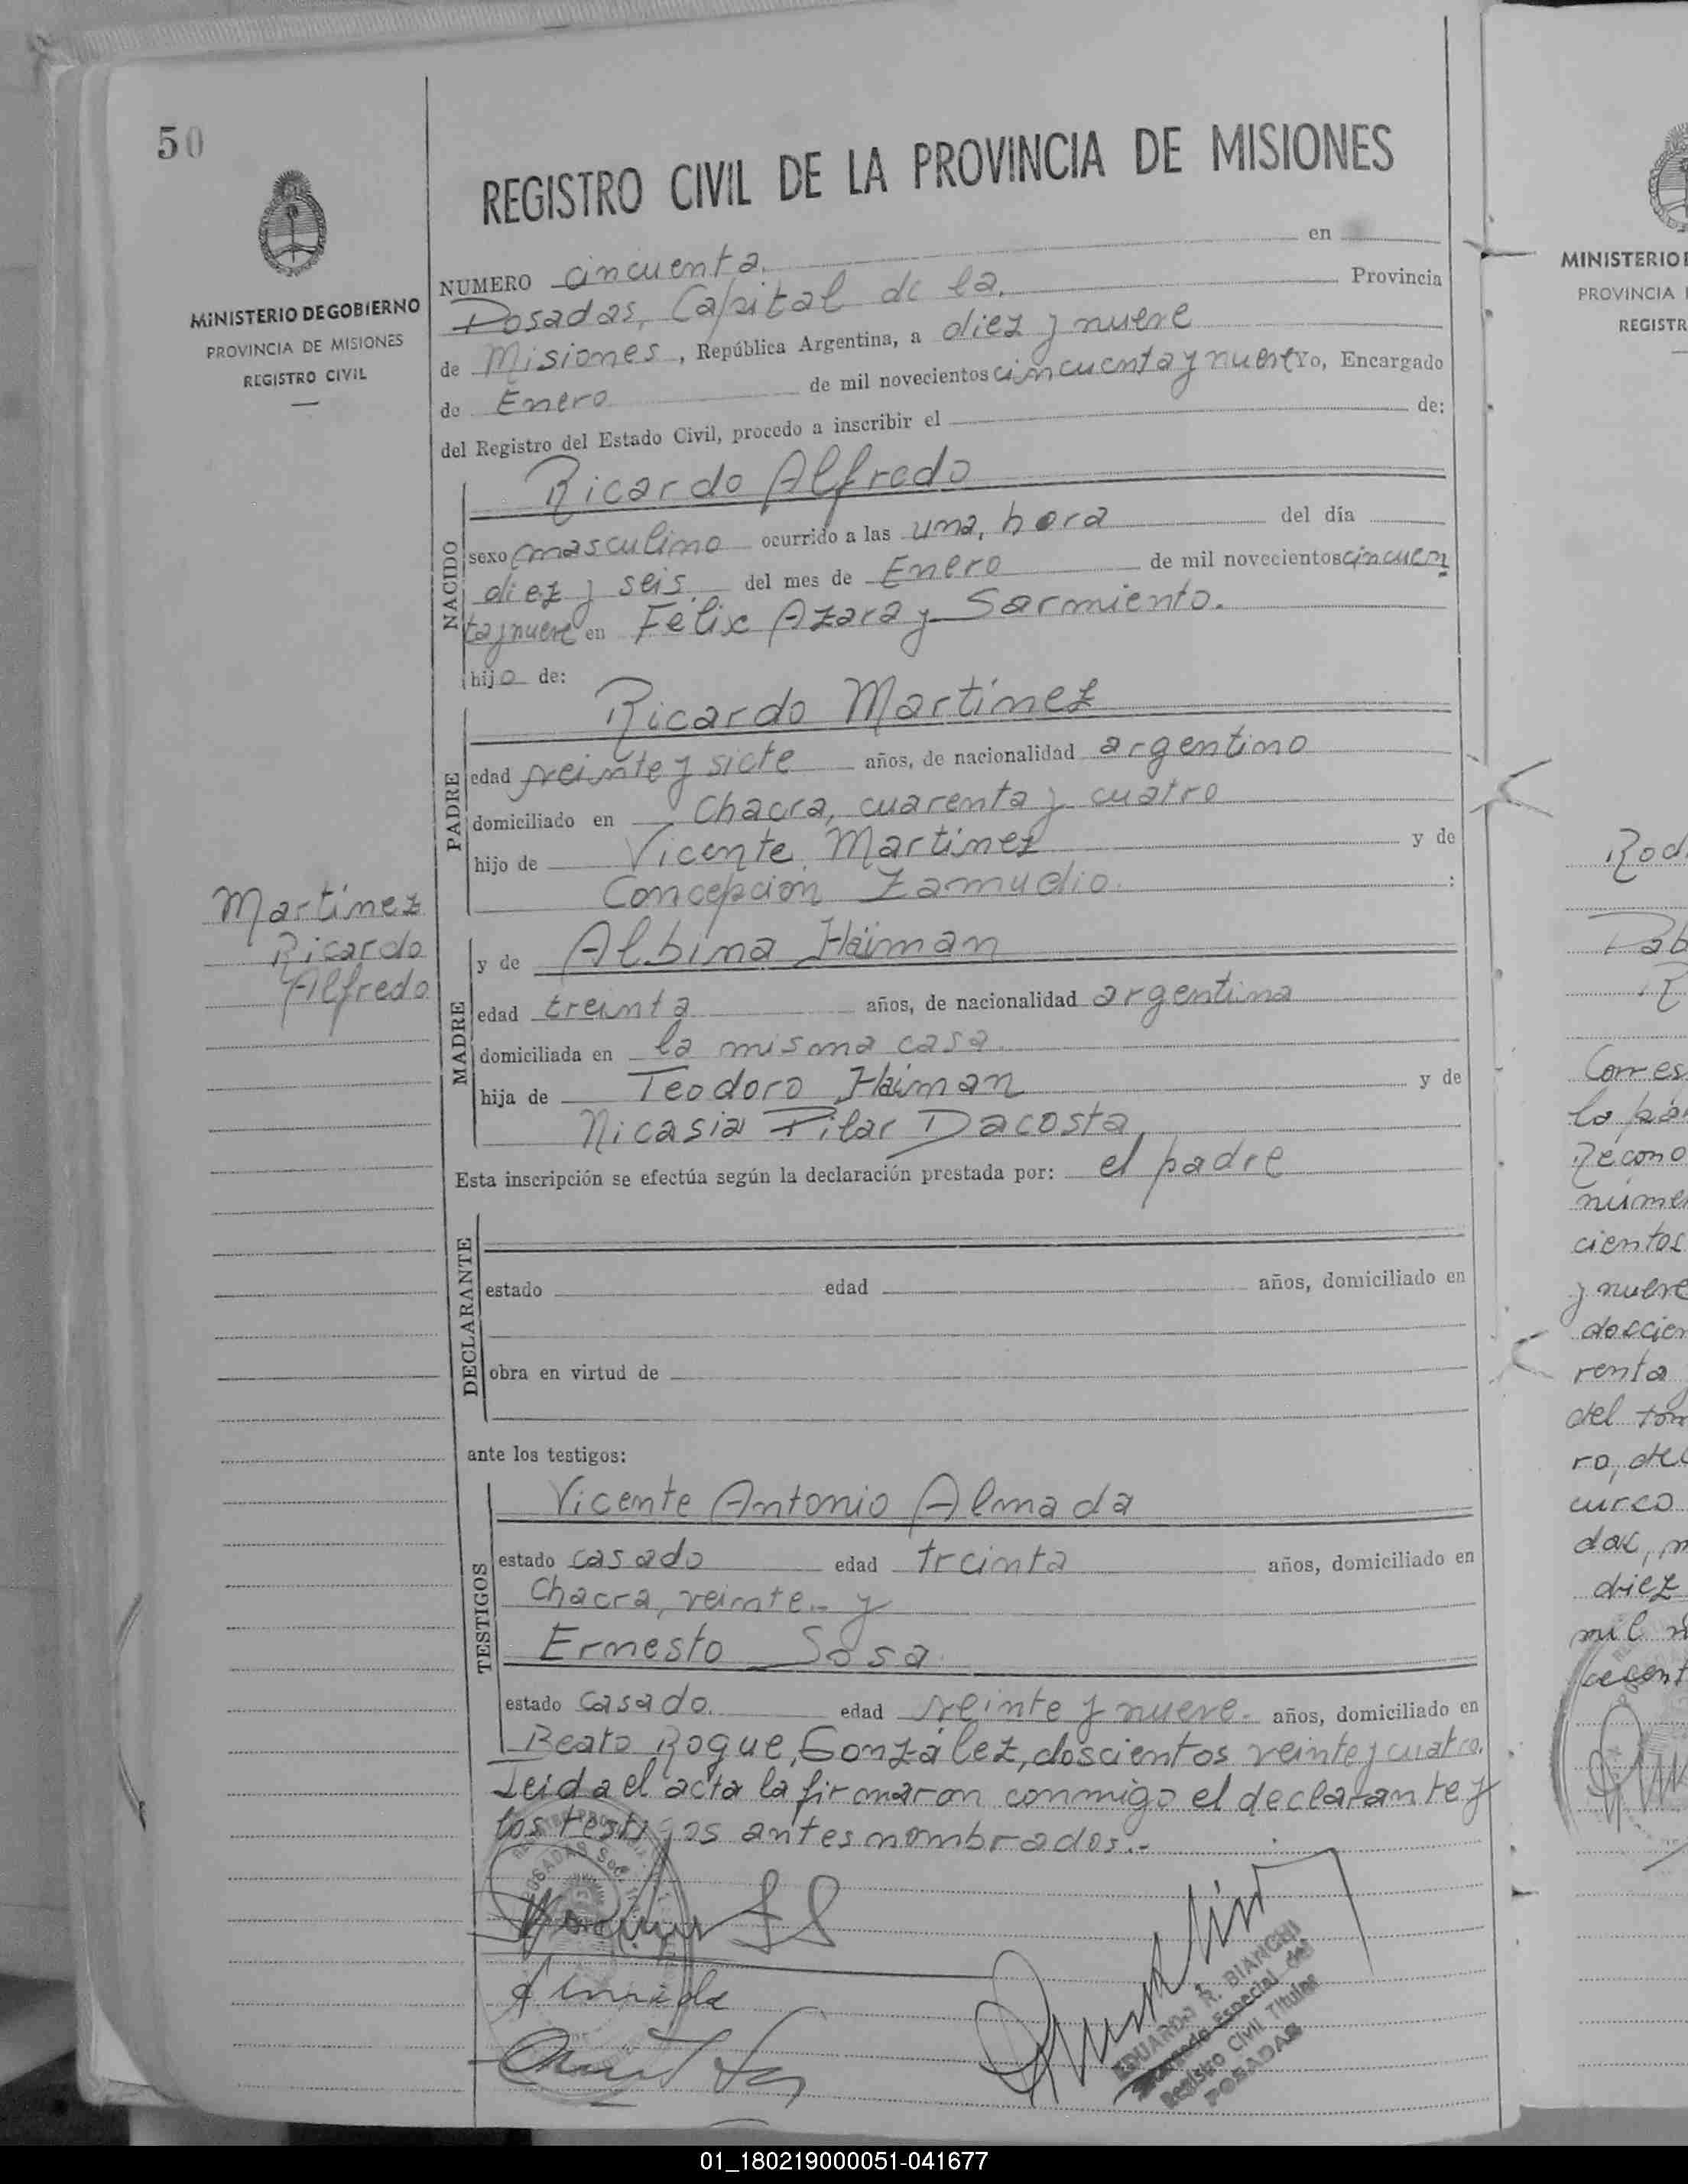 50
MINISTERIO DE GOBIERNO
PROVINCIA DE MISIONES
REGISTRO CIVIL
Martínez
Ricardo
Alfredo
REGISTRO CIVIL DE LA PROVINCIA DE MISIONES
NUMERO cincuenta. en
Posadas, Capital de la. Provincia
de Misiones, República Argentina, a diez y nueve
de Enero de mil novecientos cincuenta y nueve Yo, Encargado
del Registro del Estado Civil, procedo a inscribir el de:
NACIDO
Ricardo Alfredo
sexo masculino ocurrido a las una, hora del día
diez y seis. del mes de Enero de mil novecientos cincuen
ta y nueve en Félix Azara y Sarmiento.
hijo de:
PADRE
Ricardo Martínez
edad veinte y siete años, de nacionalidad argentino
domiciliado en Chacra, cuarenta y cuatro
hijo de Vicente Martínez y de
Concepción Zamudio. :
MADRE
y de Albina Haiman
edad treinta años, de nacionalidad argentina
domiciliada en la misma casa.
hija de Teodoro Haiman y de
Nicasia Pilar Dacosta
Esta inscripción se efectúa según la declaración prestada por: el padre
DECLARANTE
estado edad años, domiciliado en
obra en virtud de
ante los testigos:
TESTIGOS
Vicente Antonio Almada
estado casado edad treinta años, domiciliado en
Chacra, veinte.- y
Ernesto Sosa
estado casado. edad veinte y nueve.- años, domiciliado en
Beato Roque, González, doscientos veinte y cuatro.
Leida el acta la firmaron conmigo el declarante y
los testigos antes nombrados.-
EDUARDO R. BIANCHI
Encargado Especial del
Registro Civil Titular
POSADAS
MINISTERIO
PROVINCIA
REGISTR
Rod
Pab
R
Corres
la pá
Recono
núme
cientos
y nueve
doscien
renta
del tom
ro, del
curco
das, m
diez
mil n
01_180219000051-041677